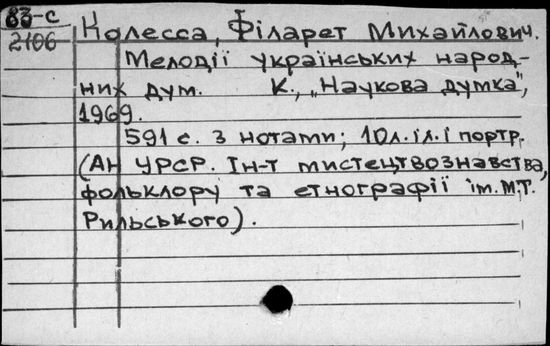 83-с
2106
Колесса, Філарет Михайлович.
Мелодії українських народ-
них дум. К., „Наукова думка",
1969.
591 с. з нотами; 10л. іл. і портр.
(АН УРСР. Ін-т мистецтвознавства,
фольклору та етнографії ім. М.Т.
Рильського).